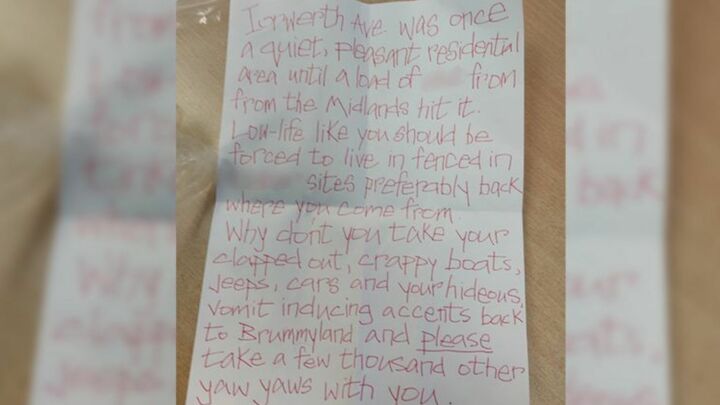 Iorwerth Ave. was once
a quiet, pleasant residential
area until a load of from
from the Midlands hit it.
Low-life like you should be
forced to live in fenced in
sites preferably back
where you come from.
Why don't you take your
clapped out, crappy boats,
jeeps, cars and your hideous,
vomit inducing accents back
to Brummyland and please
take a few thousand other
yaw yaws with you.